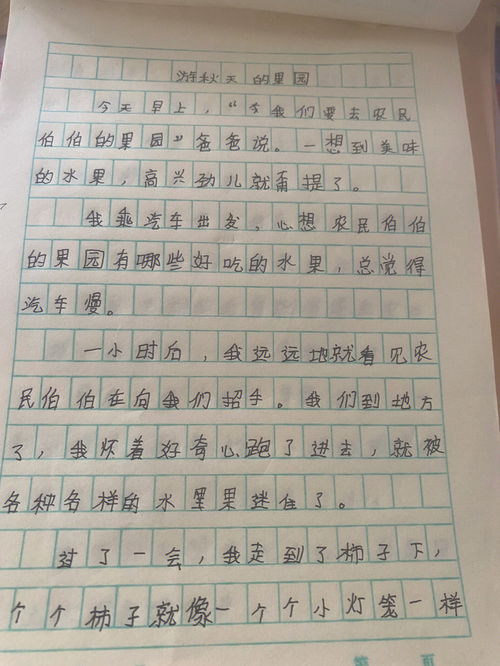 游秋天的果园
今天早上，“今我们要去农民
伯伯的果园”爸爸说。一想到美味
的水果，高兴劲儿就甭提了。
我乘汽车出发，心想农民伯伯
的果园有哪些好吃的水果，总觉得
汽车慢。
一小时后，我远远地就看见农
民伯伯在向我们招手。我们到地方
了，我怀着好奇心跑了进去，就被
各种各样的水果迷住了。
过了一会，我走到了柿子下，
个个柿子就像一个个小灯笼一样